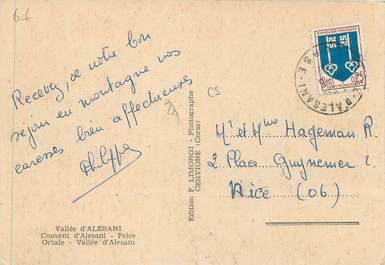 61
Recevez, de notre bon
séjour en montagne vos
caresses bien affectueuses
Philippe
CS
Vallée d'ALESANI
Couvent d'Alesani - Felce
Ortale - Vallée d'Alesani
Edition P. LIMONGI - Photographe
CERVIONE (Corse)
D'ALESANI
Mr et Mme Hageman R.
2 Place Guynemer
Nice (06)